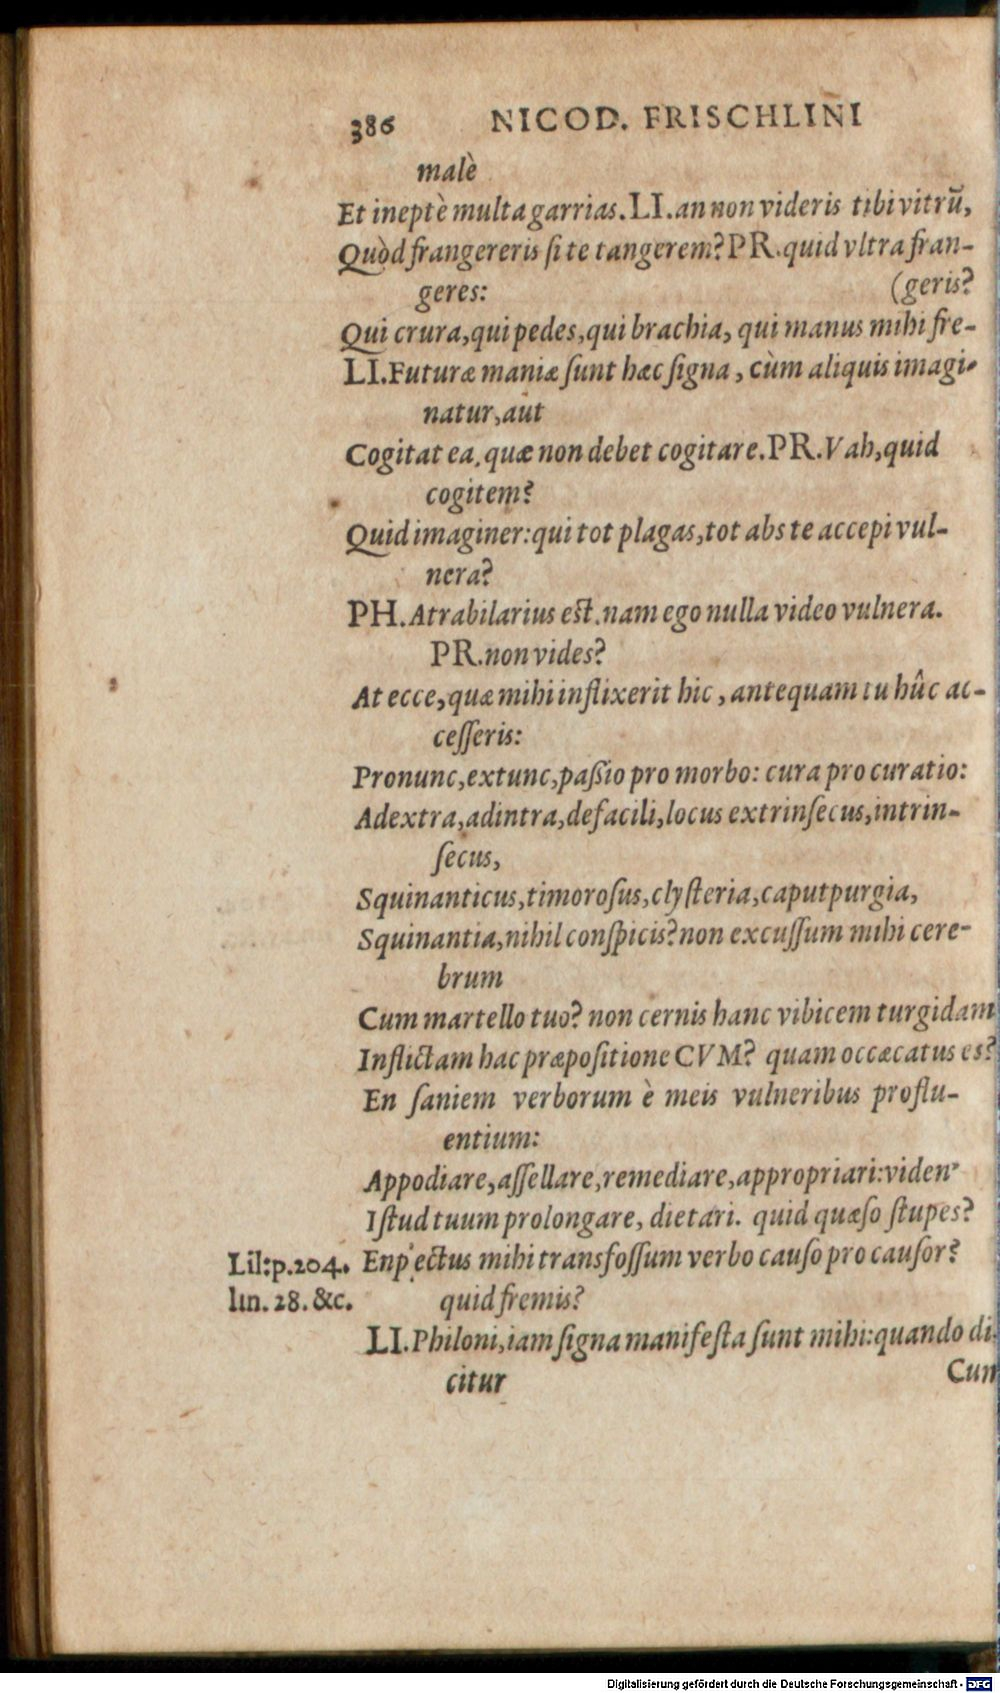 386 NICOD. FRISCHLINI
malè
Et ineptè multa garrias. LI. an non videris tibi vitrũ,
Quòd frangereris ſi te tangerem? PR. quid vltra fran-
geres: (geris?
Qui crura, qui pedes, qui brachia, qui manus mihi fre-
LI. Futuræ maniæ ſunt hæc ſigna, cùm aliquis imagi-
natur, aut
Cogitat ea, quæ non debet cogitare. PR. Vah, quid
cogitem?
Quid imaginer: qui tot plagas, tot abs te accepi vul-
nera?
PH. Atrabilarius est. nam ego nulla video vulnera.
PR. non vides?
At ecce, quæ mihi inflixerit hic, antequam tu hûc ac-
ceſſeris:
Pronunc, extunc, paßio pro morbo: cura pro curatio:
Adextra, adintra, defacili, locus extrinſecus, intrin-
ſecus,
Squinanticus, timoroſus, clyſteria, caputpurgia,
Squinantia, nihil conſpicis? non excuſſum mihi cere-
brum
Cum martello tuo? non cernis hanc vibicem turgidam
Inflictam hac præpoſitione CVM? quam occæcatus es?
En ſaniem verborum è meis vulneribus proflu-
entium:
Appodiare, aſſellare, remediare, appropriari: viden'
Iſtud tuum prolongare, dietari. quid quæſo ſtupes?
Lil: p. 204. En pectus mihi transfoſſum verbo cauſo pro cauſor?
lin. 28. &c. quid fremis?
LI. Philoni, iam ſigna manifeſta ſunt mihi: quando di-
citur Cum
Digitalisierung gefördert durch die Deutsche Forschungsgemeinschaft - DFG